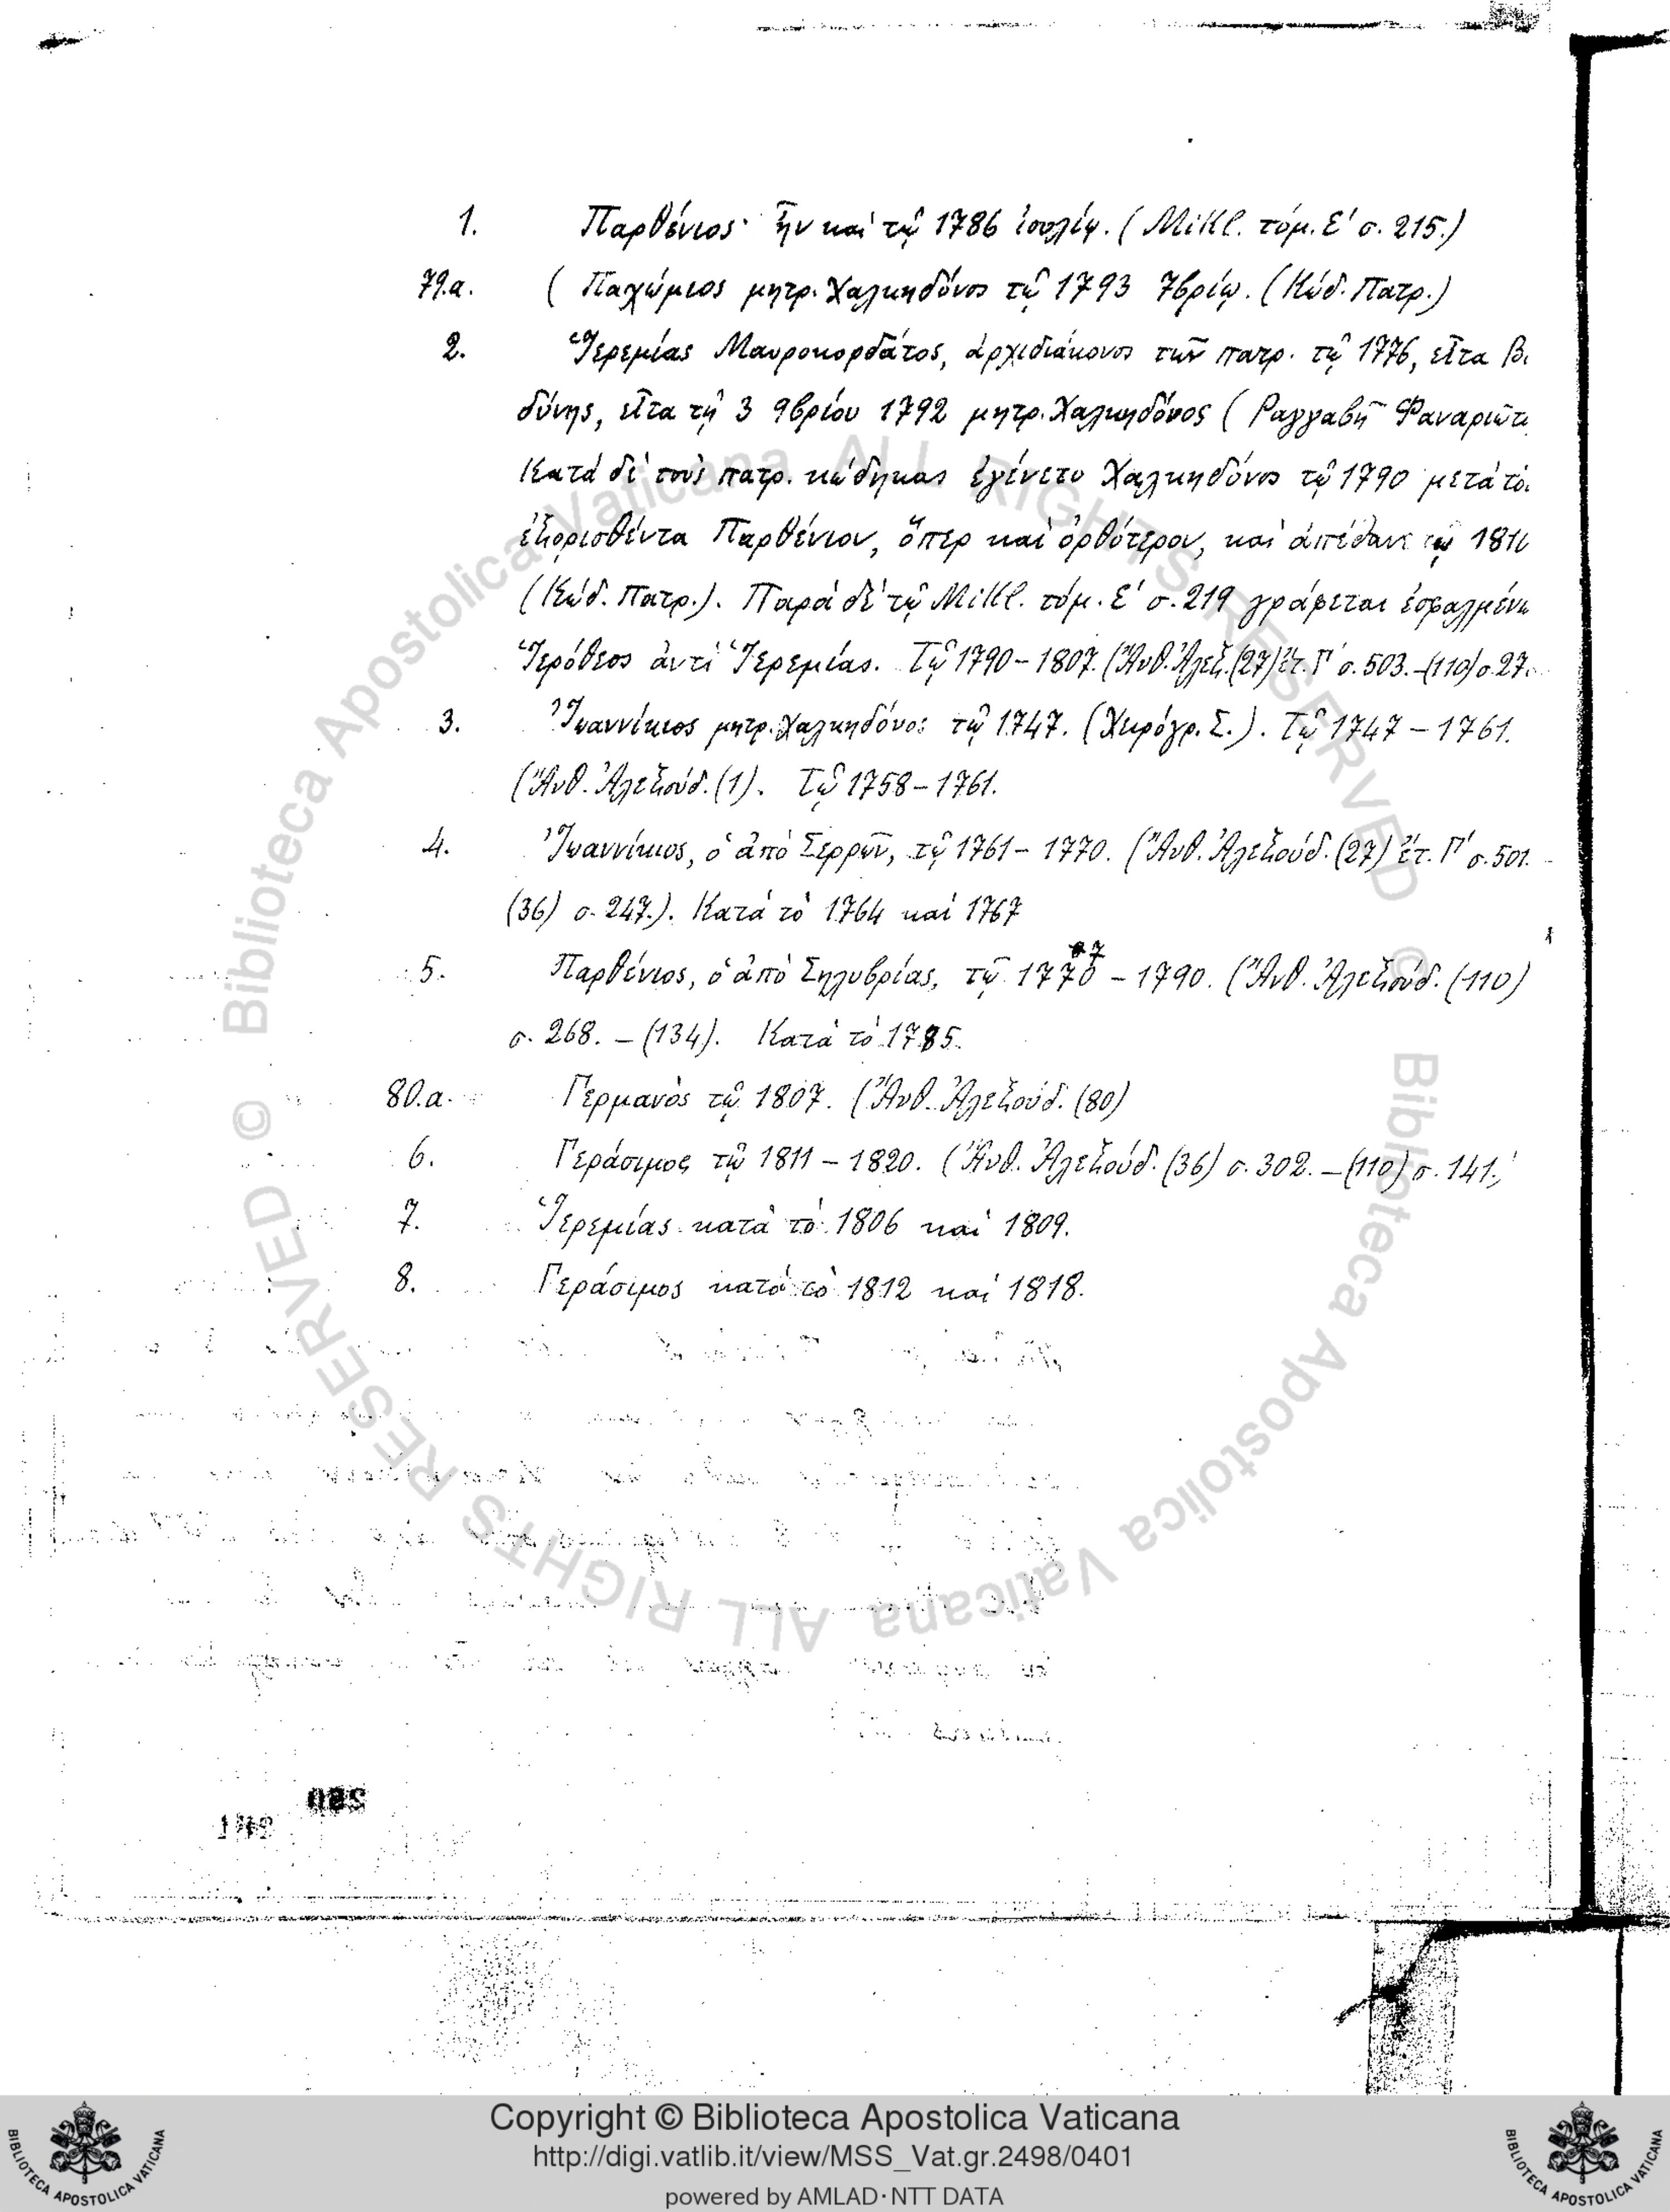 1. Παρθένιος· ἦν καὶ τῷ 1786 ἰουλίῳ. (Mikl. τόμ. Ε΄ σ. 215.)
79.α. ( Παχώμιος μητρ. Χαλκηδόνος τῷ 1793 7βρίῳ. (Κώδ. Πατρ.)
2. Ἱερεμίας Μαυροκορδάτος, ἀρχιδιάκονος τῶν πατρ. τῷ 1776, εἶτα Βι
δύνης, εἶτα τῇ 3 9βρίου 1792 μητρ. Χαλκηδόνος ( Ραγγαβῆ Φαναριῶτ
Κατὰ δὲ τοὺς πατρ. κώδηκας ἐγένετο Χαλκηδόνος τῷ 1790 μετὰ τὸ
ἐξορισθέντα Παρθένιον, ὅπερ καὶ ὀρθότερον, καὶ ἀπέθανε τῷ
(Κώδ. Πατρ.). Παρὰ δὲ τῷ Mikl. τόμ. Ε΄ σ. 219 γράφεται ἐσφαλμένω
Ἱερόθεος ἀντὶ Ἱερεμίας. Τῷ 1790 – 1807. (Ἀνθ. Ἀλεξ. (27) ἔτ. Γ΄ σ. 503. – (110) σ. 27.
3. Ἰωαννίκιος μητρ. Χαλκηδόνος τῷ 1747. (Χειρόγρ. Σ.). Τῷ 1747 – 1761.
(Ἀνθ. Ἀλεξούδ. (1). Τῷ 1758 – 1761.
4. Ἰωαννίκιος, ὁ ἀπὸ Σερρῶν, τῷ 1761 – 1770. (Ἀνθ. Ἀλεξούδ. (27) ἔτ. Γ΄ σ. 501. –
(36) σ. 247.). Κατὰ τὸ 1764 καὶ 1767
5. Παρθένιος, ὁ ἀπὸ Σηλυβρίας, τῷ 1770 – 1790. (Ἀνθ. Ἀλεξούδ. (110)
σ. 268. – (134). Κατὰ τὸ 1785.
80.α. Γερμανὸς τῷ 1807. (Ἀνθ. Ἀλεξούδ. (80)
6. Γεράσιμος τῷ 1811 – 1820. (Ἀνθ. Ἀλεξούδ. (36) σ. 302. – (110) σ. 141.
7. Ἱερεμίας κατὰ τὸ 1806 καὶ 1809.
8. Γεράσιμος κατὰ τὸ 1812 καὶ 1818.
© Biblioteca Apostolica Vaticana ALL RIGHTS RESERVED
© Biblioteca Apostolica Vaticana ALL RIGHTS RESERVED
Copyright © Biblioteca Apostolica Vaticana
http://digi.vatlib.it/view/MSS_Vat.gr.2498/0401
powered by AMLAD·NTT DATA
BIBLIOTECA APOSTOLICA VATICANA
BIBLIOTECA APOSTOLICA VATICANA